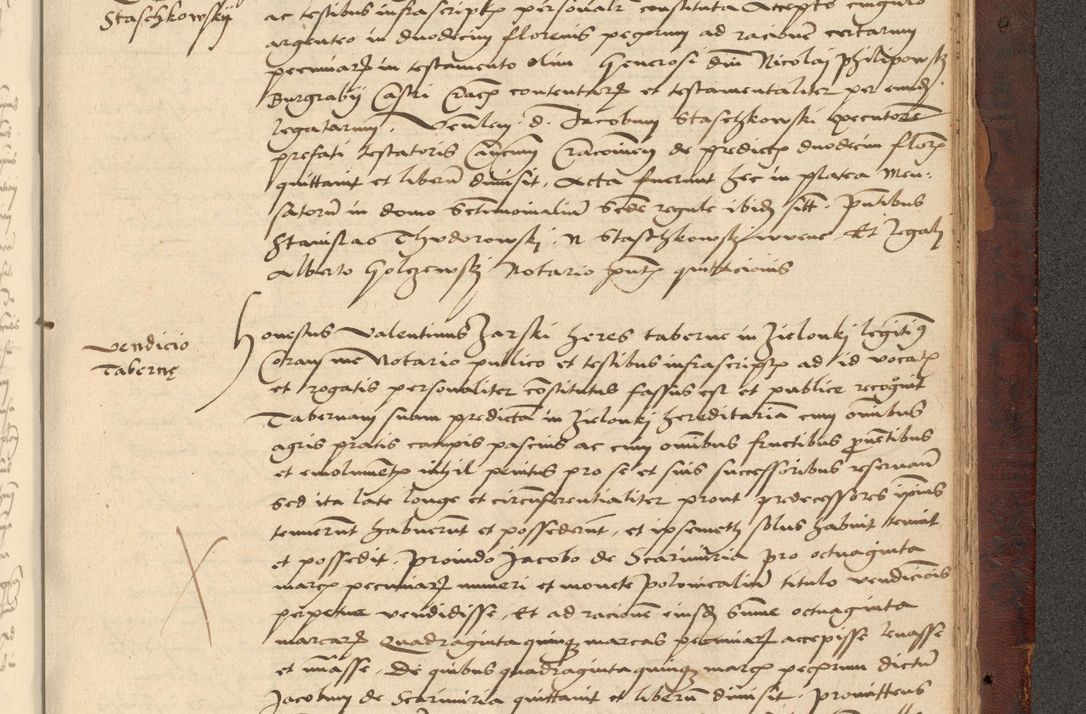 Staschkowskÿ
ac testibus infrascriptꝭ personalr constituta Accepto cingulo
argenteo in duodecim florenis pegarum ad racionē certarum
pecuniarꝝ in testamento olim Generosi dnī Nicolai Philipowskꝭ
Burgrabij Castri Cracꝭ contentarꝝ et testamentaliter per eund
legatarum. Venlem d. Jacobum Staschkowski executorē
prefati testatoris Canonicum Cracoviensem de predictꝭ duodecim florꝭ
quittavit et liberū dimisit. Acta fuerunt hec in platea Men-
satorū in domo Sctimonialiū Scde regule ibidꝭ sitt. Pntibus
Stanislao Thudorowski. N Staschkowski iuvene. Et Legali
Alberto Golczewskꝭ Notario pntꝭ quittacionis
Vendicio
Tabernę
Honestus Valentinus Zarski heres taberne in Zielonki legitimꝰ
Coram me Notario publico et testibus infrascriptꝭ ad id vocatꝭ
et rogatis personaliter cōstitutus fassus est et publice recognovit
Tabernam suam predictā in Zielonki hereditariā cum omībus
agris pratis campis pascuis ac cum omībus fructibus pvētibus
et emolumētꝭ nihil penitus pro se et suis successoribus reservanđ
Sed ita late longe et circūferentialiter prout predecessores ipsius
tenuerūt habuerūt et possederūt, et ipsemetꝭ solus habuit tenuit
et possedit. Proindo Jacobo de Scarimiria pro octuaginta
marcꝭ pecuniarꝝ numeri et monete Polonicaliū titulo vendicionis
perpetue vendidisse. Et ad racionē eiusdꝭ Sūme octuaginta
marcarꝝ Quadraginta quinqꝫ marcas pecuniarꝝ accepisse levasse
et nūasse. De quibus quadraginta quinqꝫ marcꝭ pecꝭrum dictū
Jacobum de Scarimiria quittavit et liberū dimisit. Promittens